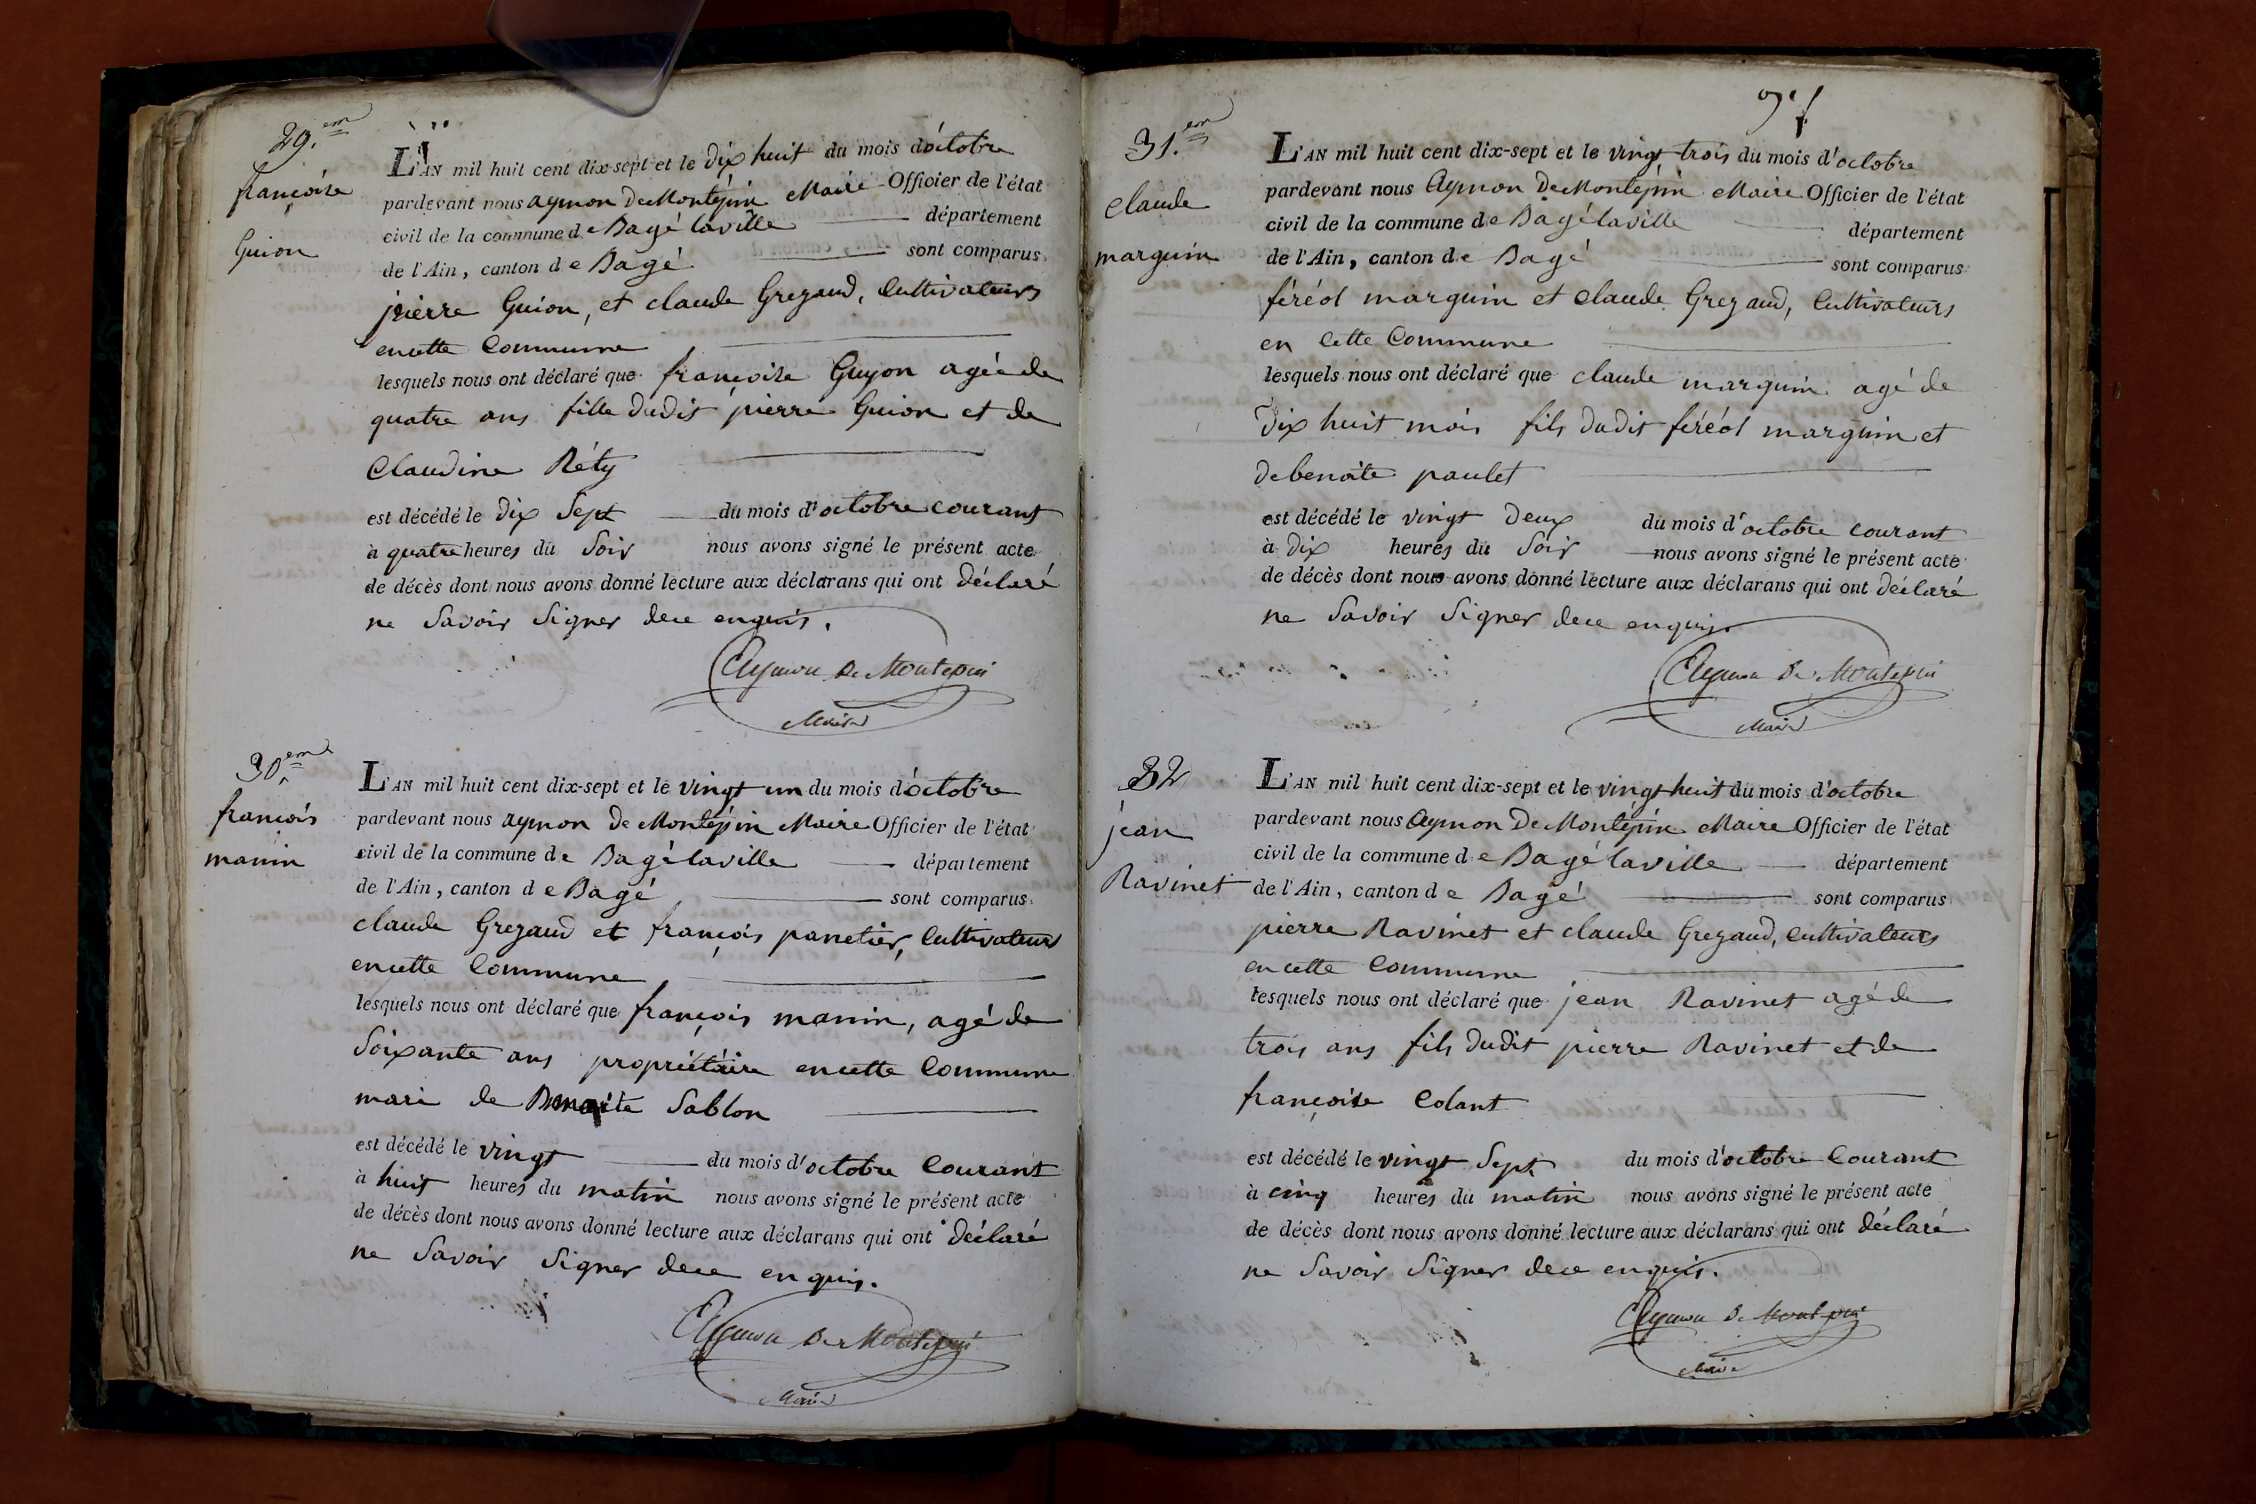 29.em
françoise
Guion
L'AN mil huit cent dix-sept et le dix huit du mois d'octobre
pardevant nous aymon De Montépin Maire Officier de l'état
civil de la commune de Bagé laville département
de l'Ain, canton de Bagé sont comparus
pierre Guion, et claude Gregaud, Cultivateurs
en cette Commune
lesquels nous ont déclaré que françoise Guyon agée de
quatre ans fille dudit pierre Guion et de
Claudine Réty
est décédé le dix Sept du mois d'octobre courant
à quatre heures du Soir nous avons signé le présent acte
de décès dont nous avons donné lecture aux déclarans qui ont déclaré
ne Savoir Signer de ce enquis.
Aymon De Montepin
Maire
30.em
françois
manin
L'AN mil huit cent dix-sept et le vingt un du mois d'octobre
pardevant nous aymon De Montépin Maire Officier de l'état
civil de la commune de Bagé laville département
de l'Ain, canton de Bagé sont comparus
claude Gregaud et françois panetier, Cultivateurs
en cette Commune
lesquels nous ont déclaré que françois manin, agé de
Soixante ans propriétaire en cette Commune
mari de Benoite Sablon
est décédé le vingt du mois d'octobre Courant
à huit heures du matin nous avons signé le présent acte
de décès dont nous avons donné lecture aux déclarans qui ont déclaré
ne Savoir Signer de ce enquis.
Aymon De Montepin
Maire
31.em
Claude
marguin
L'AN mil huit cent dix-sept et le vingt trois du mois d'octobre
pardevant nous Aymon De Montépin Maire Officier de l'état
civil de la commune de Bagé laville département
de l'Ain, canton de Bagé sont comparus
féréol marguin et Claude Gregaud, Cultivateurs
en Cette Commune
lesquels nous ont déclaré que claude marguin agé de
Dix huit mois fils dudit féréol marguin et
de benoite paulet
est décédé le vingt Deux du mois d'octobre courant
à dix heures du Soir nous avons signé le présent acte
de décès dont nous avons donné lecture aux déclarans qui ont déclaré
ne Savoir Signer de ce enquis.
Aymon De Montepin
Maire
32
jean
Ravinet
L'AN mil huit cent dix-sept et le vingt huit du mois d'octobre
pardevant nous Aymon De Montépin Maire Officier de l'état
civil de la commune de Bagé laville département
de l'Ain, canton de Bagé sont comparus
pierre Ravinet et claude Gregaud, Cultivateurs
en cette Commune
lesquels nous ont déclaré que jean Ravinet agé de
trois ans fils dudit pierre Ravinet et de
françoise Colant
est décédé le vingt Sept du mois d'octobre Courant
à cinq heures du matin nous avons signé le présent acte
de décès dont nous avons donné lecture aux déclarans qui ont déclaré
ne Savoir Signer de ce enquis.
Aymon De Montepin
Maire